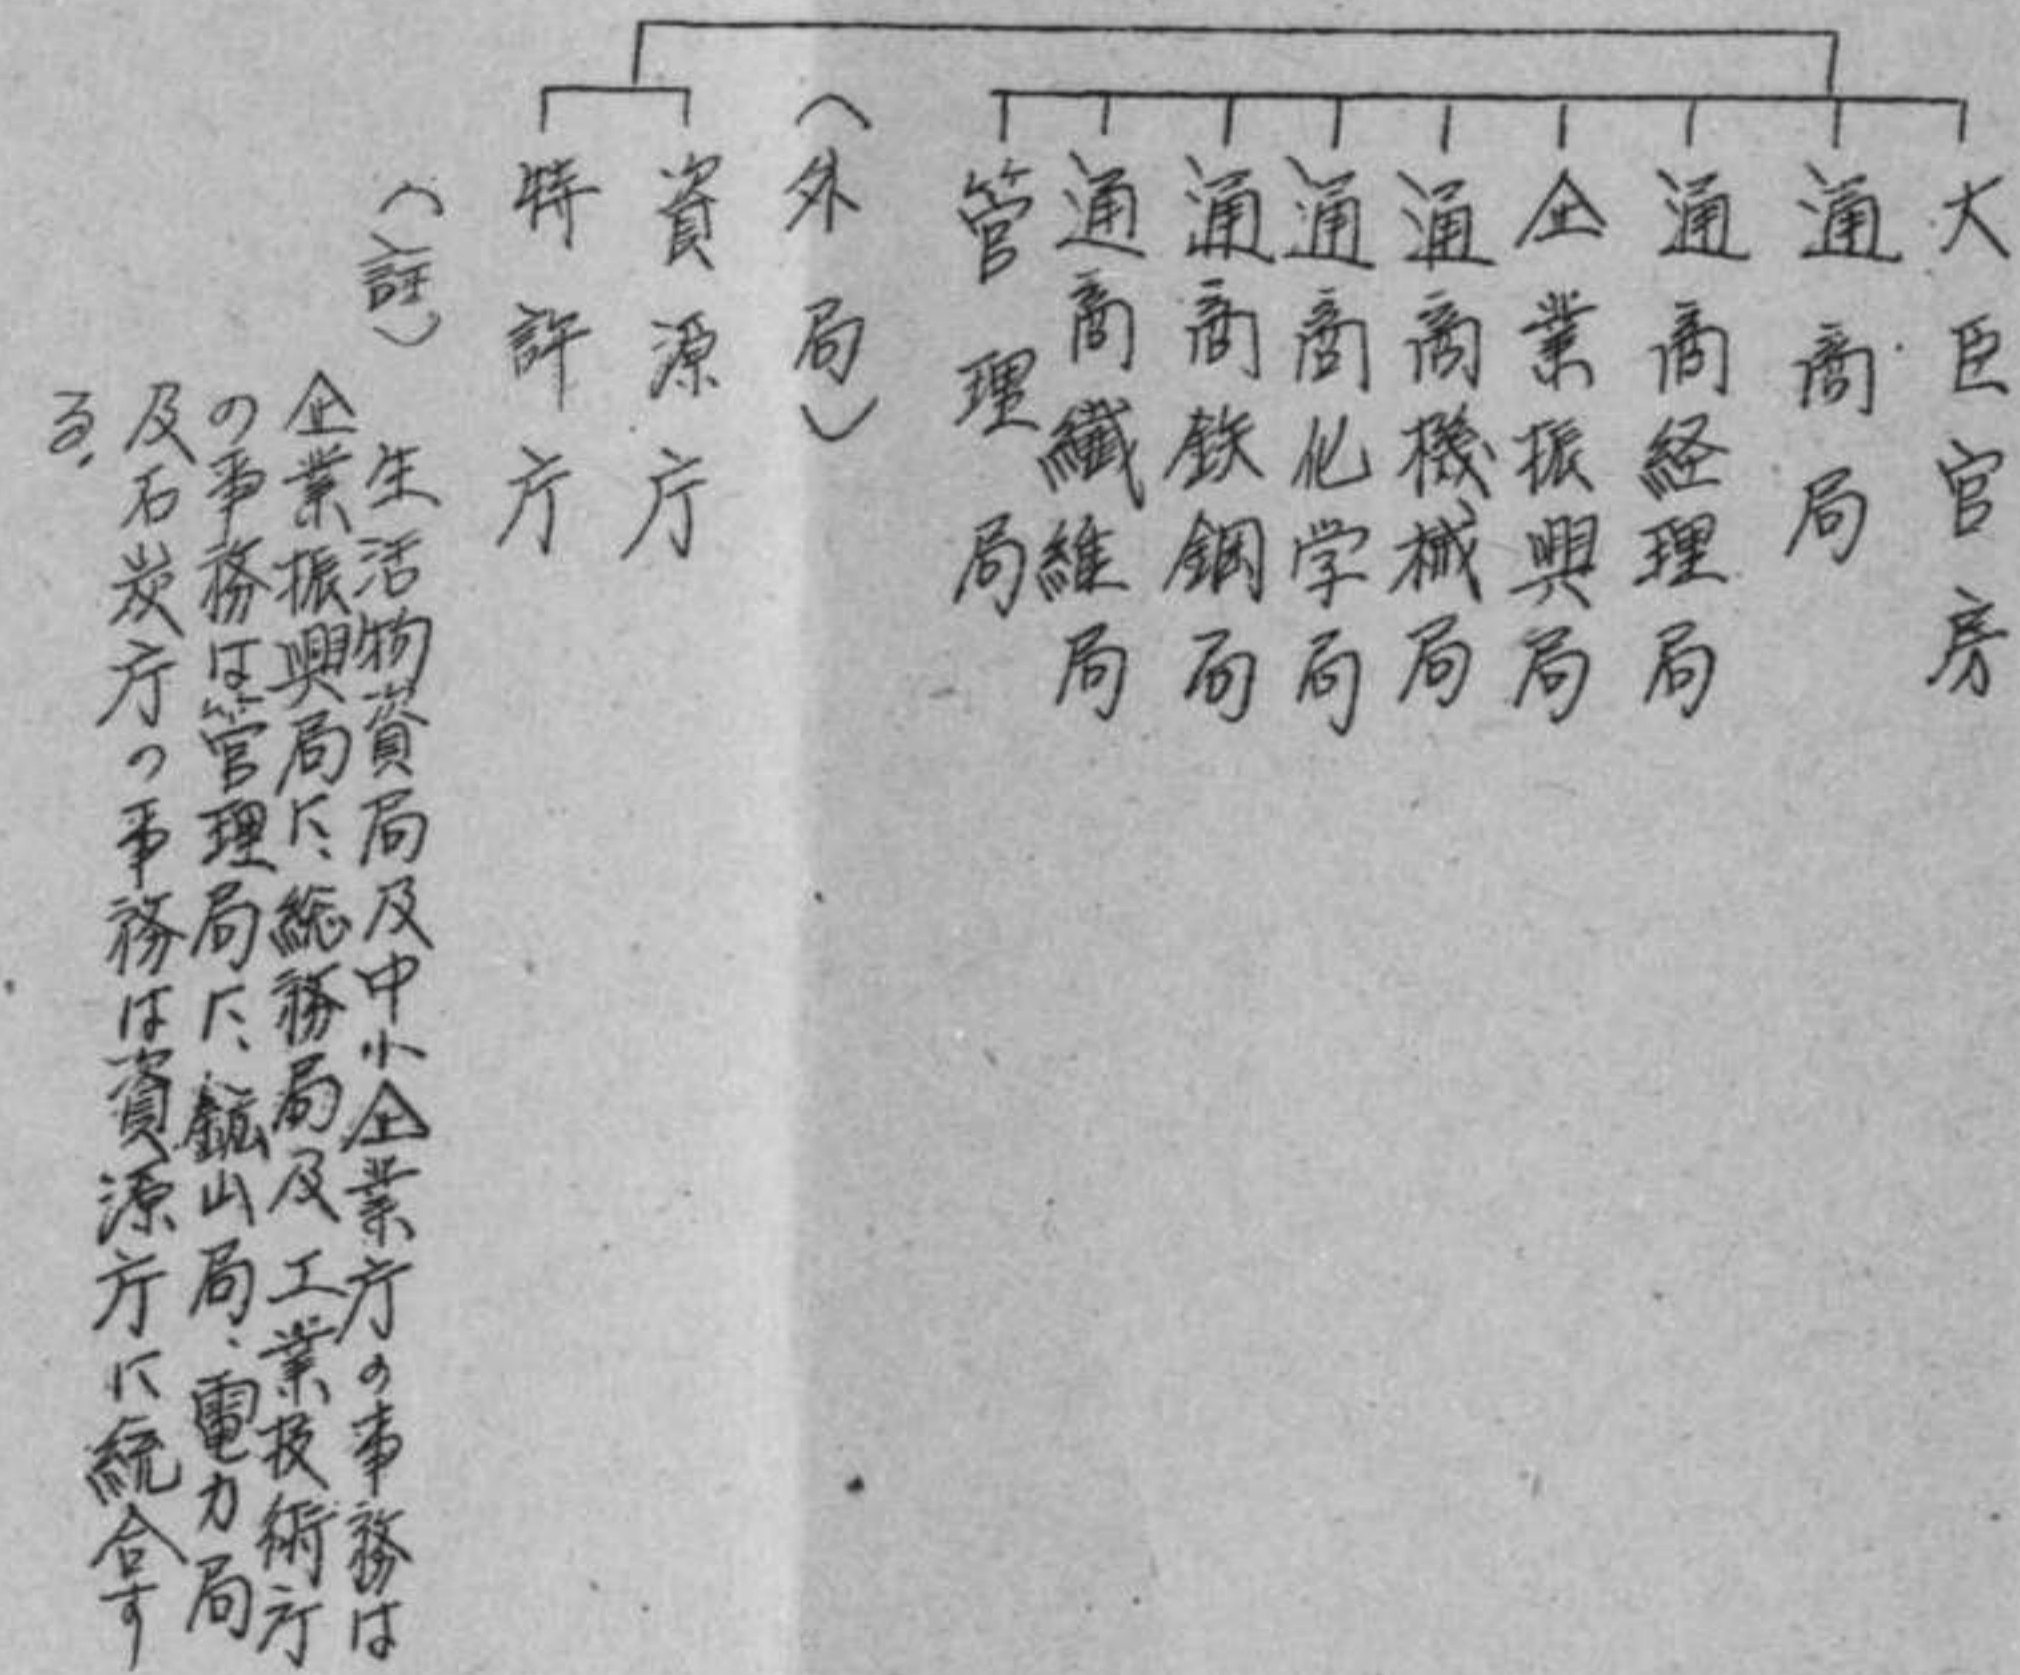 大臣官房
通商局
通商経理局
企業振興局
通商機械局
通商化学局
通商鉄鋼局
通商繊維局
管理局
(外局)
資源庁
特許庁
(註)
生活物資局及中小企業庁の事務は
企業振興局に、総務局及工業技術庁
の事務は管理局に、鉱山局、電力局
及石炭庁の事務は資源庁に統合す
る。